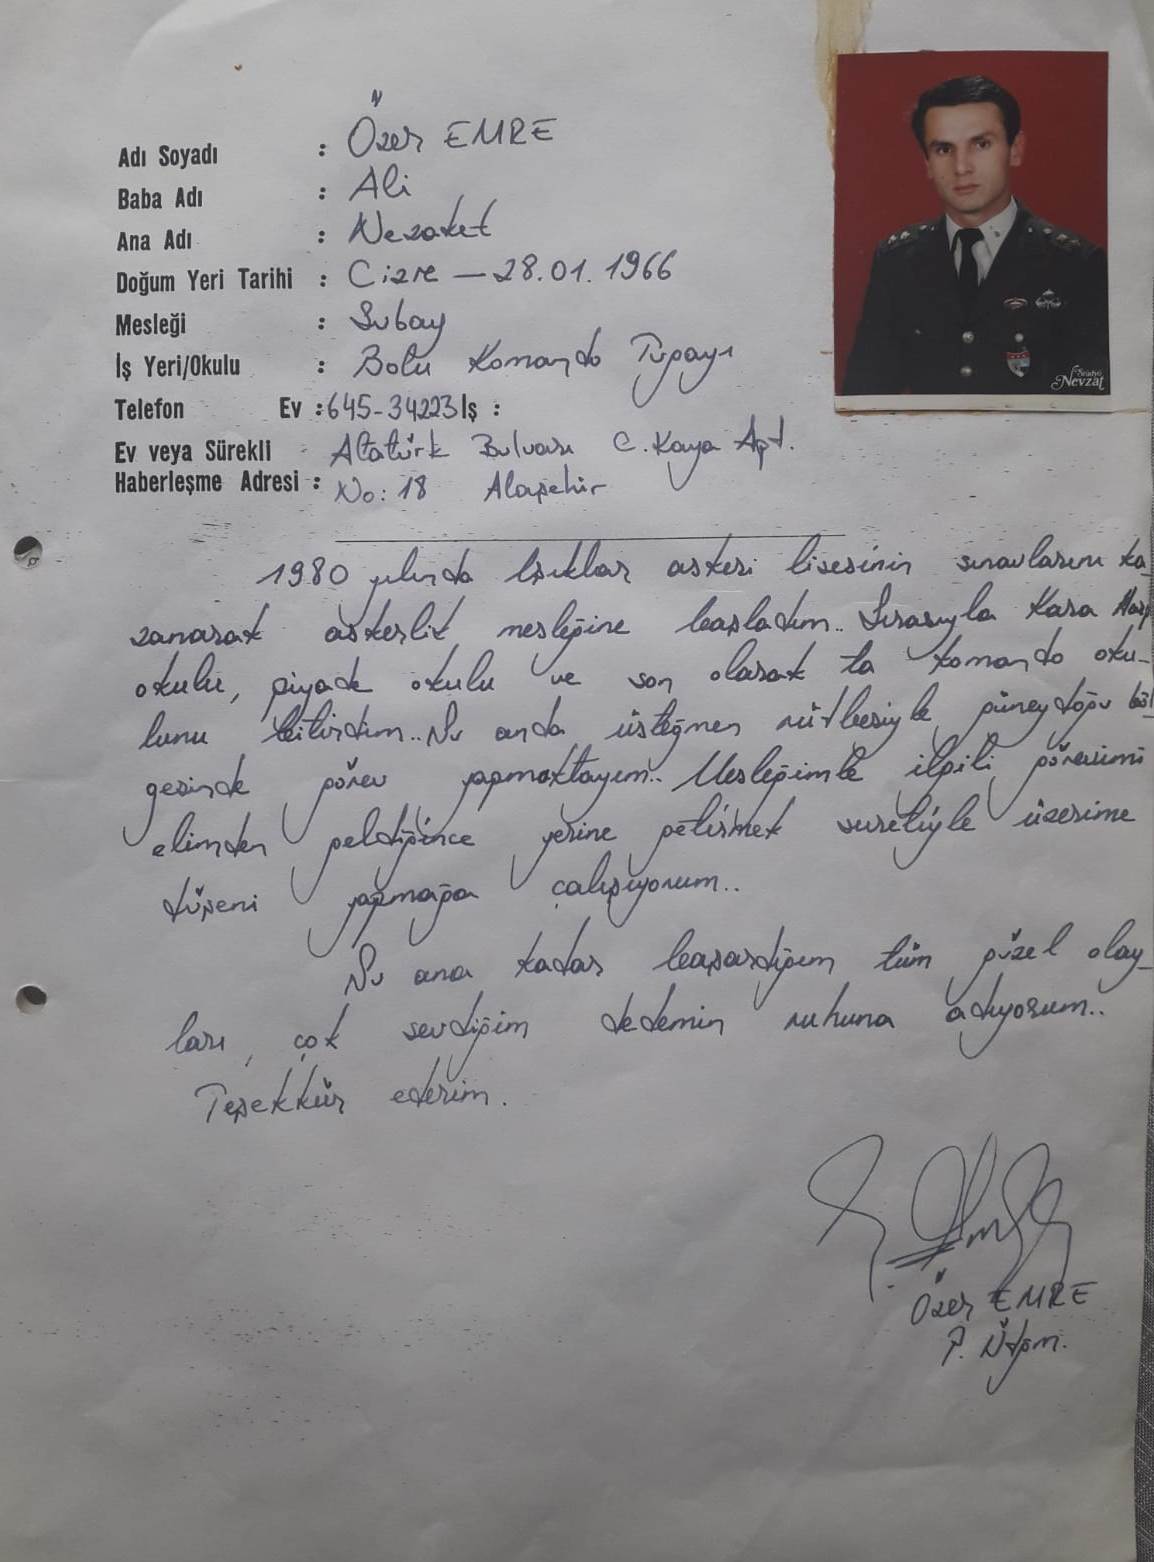 Adı Soyadı : Özer EMRE
Baba Adı : Ali
Ana Adı : Nezaket
Doğum Yeri Tarihi : Cizre — 28.01.1966
Mesleği : Subay
İş Yeri/Okulu : Bolu Komando Tugayı
Telefon Ev : 645-34223 İş :
Ev veya Sürekli Atatürk Bulvarı C. Kaya Apt.
Haberleşme Adresi : No: 18 Alaşehir
Stüdyo
Nevzat
1980 yılında Işıklar askeri lisesinin sınavlarını ka-
zanarak askerlik mesleğine başladım.. Sırasıyla Kara Harp
okulu, piyade okulu ve son olarak ta komando oku-
lunu bitirdim.. Şu anda üsteğmen rütbesiyle güneydoğu böl
gesinde görev yapmaktayım.. Mesleğimle ilgili görevimi
elimden geldiğince yerine getirmek suretiyle üzerime
düşeni yapmağa çalışıyorum..
Şu ana kadar başardığım tüm güzel olay-
ları, çok sevdiğim dedemin ruhuna adıyorum..
Teşekkür ederim.
Özer EMRE
P. Ütğm.